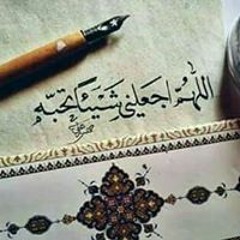 اللّهُمَّ اجعَلني شَيْئاً تُحبّه